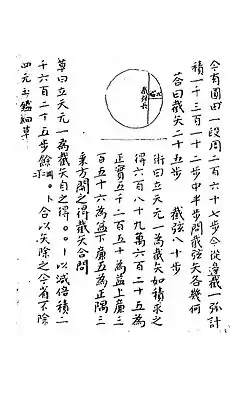 今有圓田一段周二百六十七步今從邊截一弧計
積一千三百一十二步中半步問截弦矢各幾何
荅曰截矢二十五步 截弦八十步
術曰立天元一為截矢如積求之
得六百八十九萬六百二十五為
正實五千二百五十為益上廉三
百五十六為益下廉五為正隅三
乘方開之得截矢合問
截弦長
草曰立天元一為截矢自之得○○|以減倍積二
千六百二十五步餘 合以矢除之今省不除
四元玉鑑細草